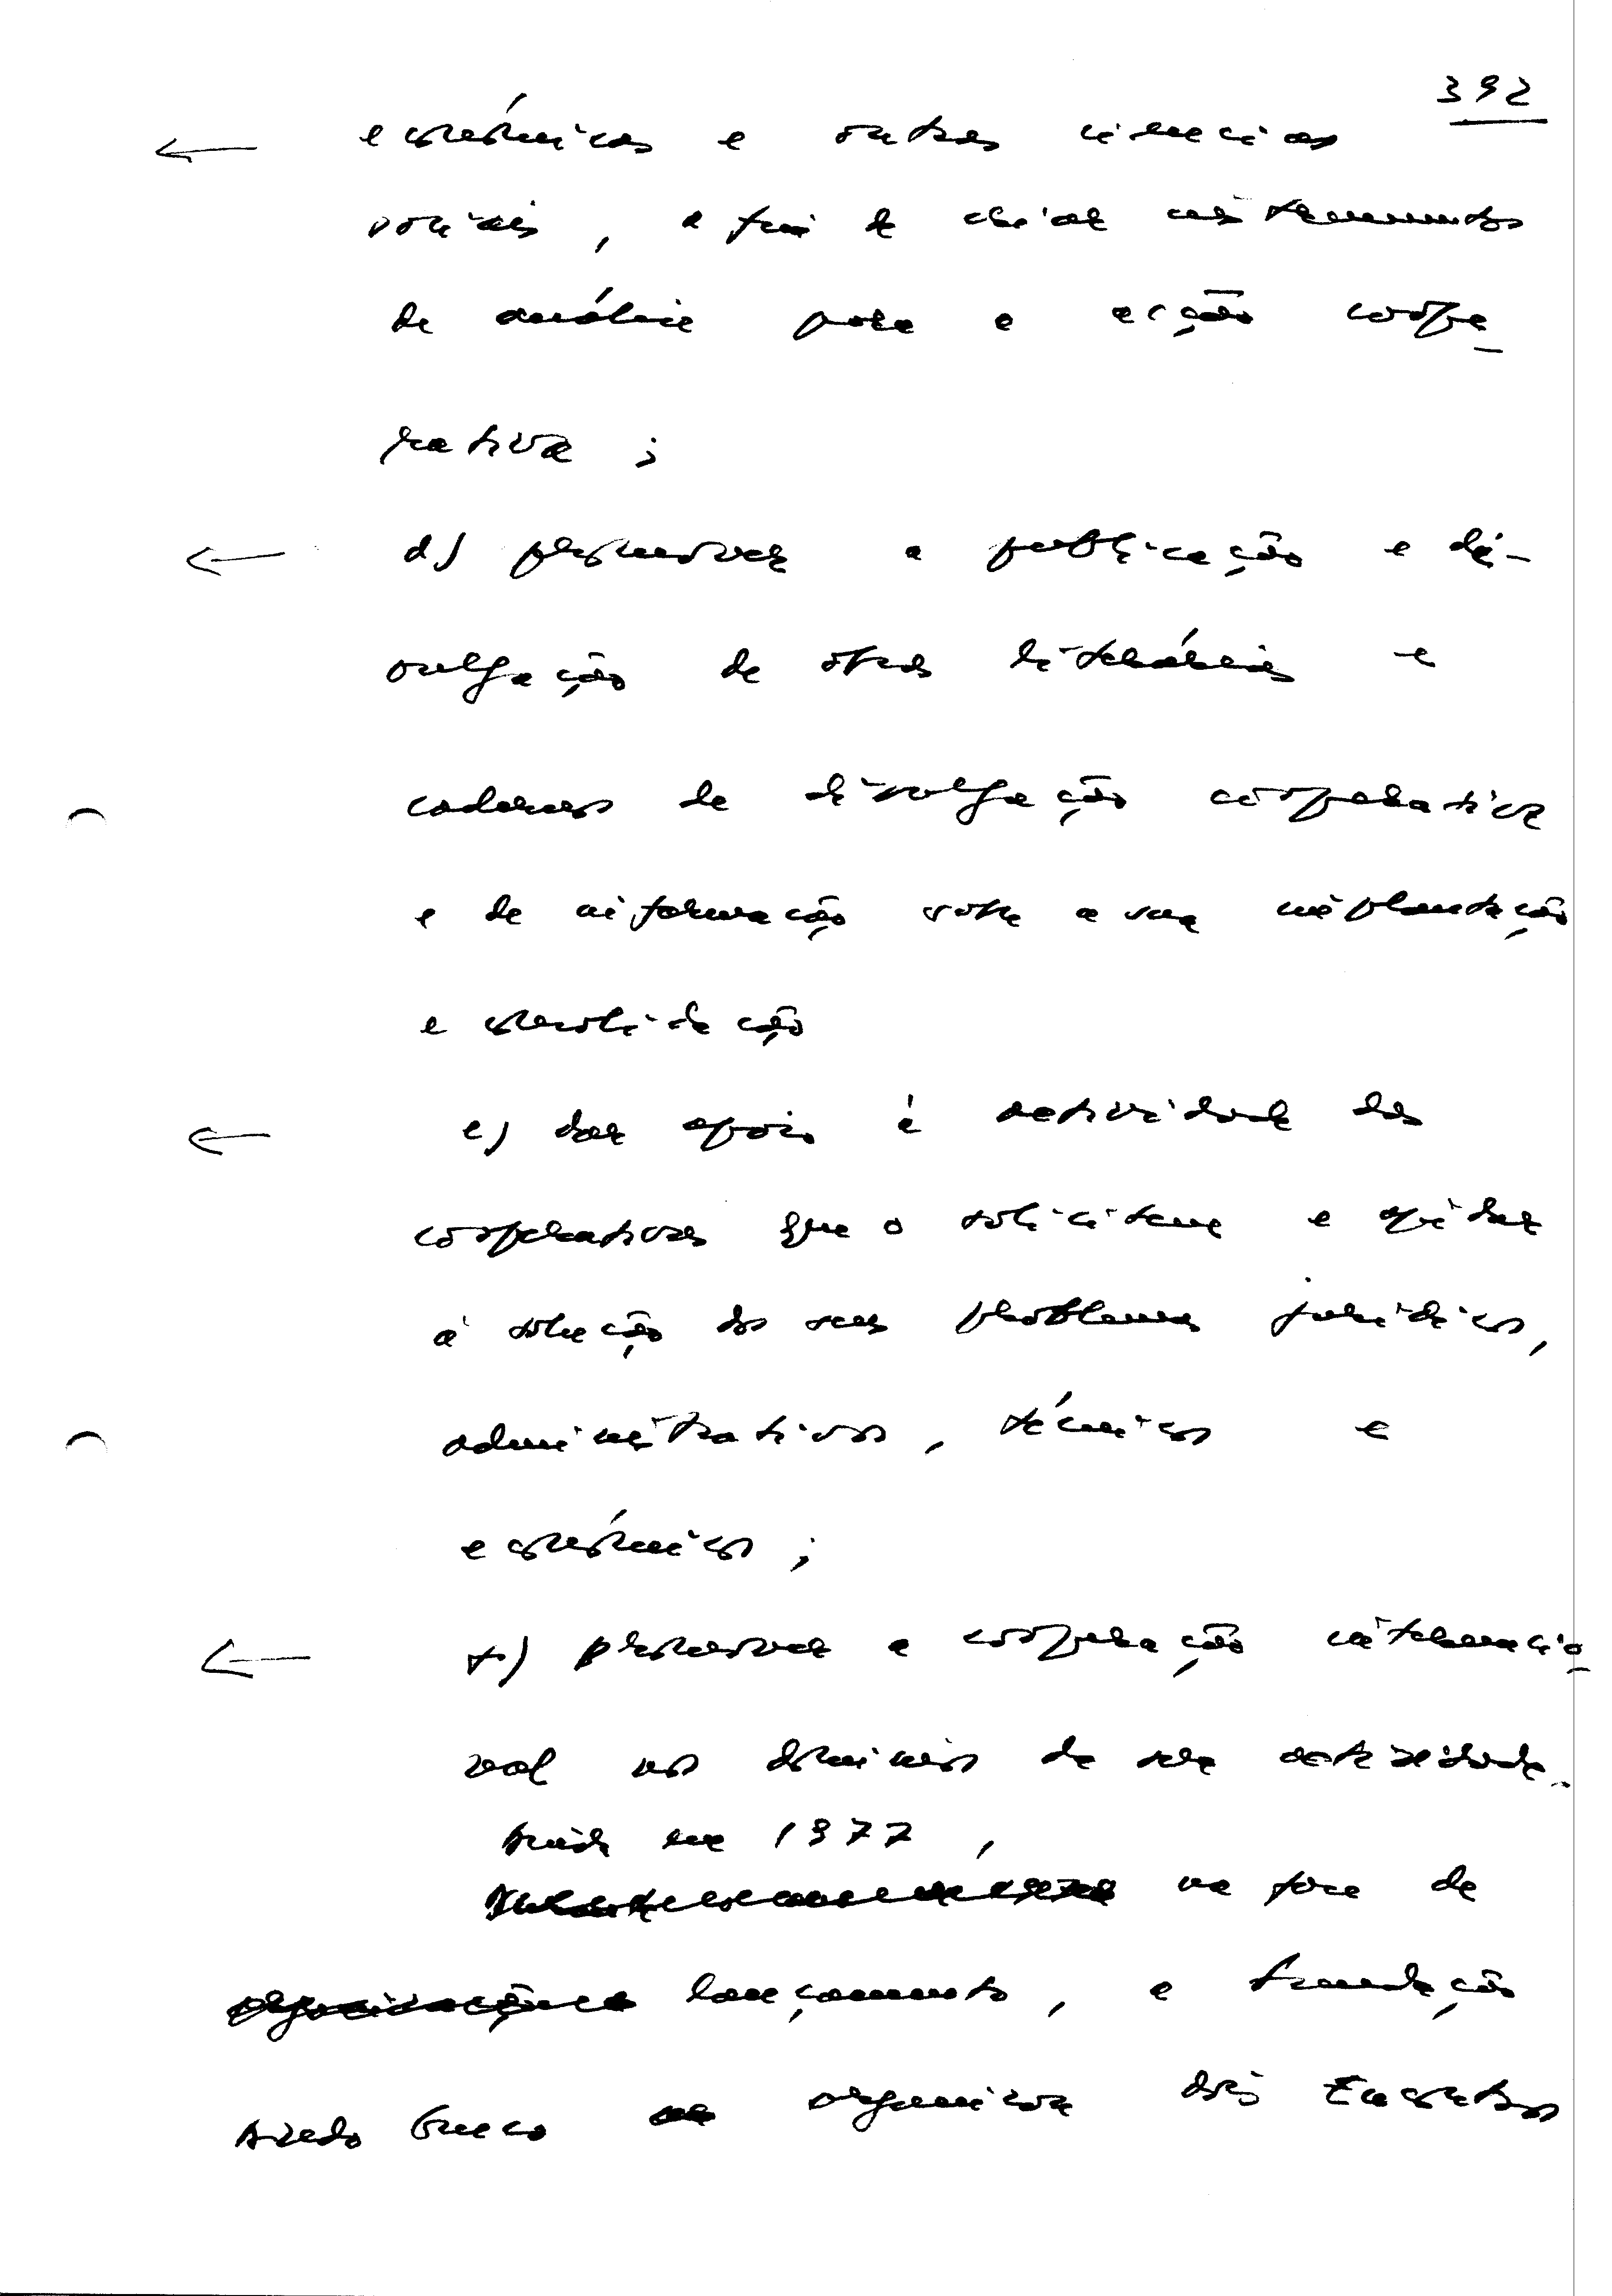 392
económicas e outras ciências
sociais, a fim de criar instrumentos
de análise para a acção coope
rativa;
d) promover a publicação e di-
vulgação de obras literárias e
cadernos de divulgação cooperativa
e de informação sobre a sua implantação
e consolidação
e) dar apoio à actividade das
cooperativas que o solicitem e ajudar
à solução dos seus problemas jurídicos,
administrativos, técnicos e
económicos;
f) promover a cooperação internacio
nal nos domínios da sua actividade.
Ainda em 1977,
na fase de
lançamento, a Fundação
Azedo Gneco organizou dois Encontros